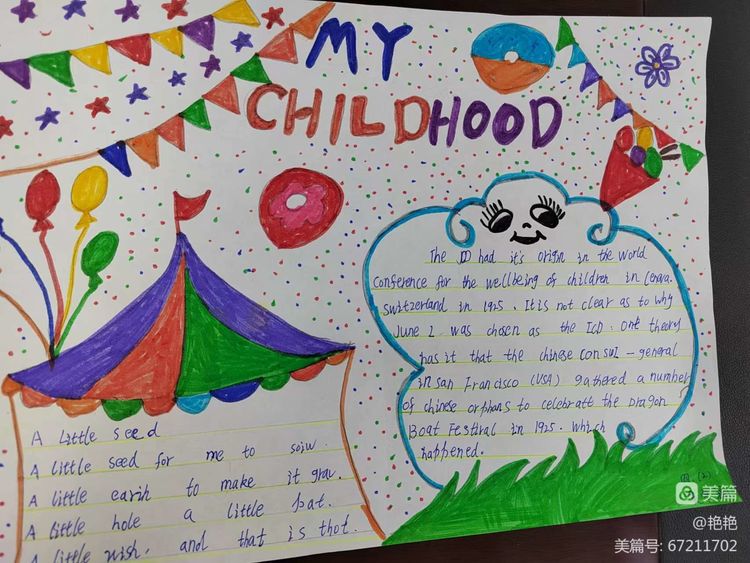 MY
CHILDHOOD
The ID had it's origin in the World
Conference for the wellbeing of children in
Switzerland in 1925. It is not clear as to why
June 1 was chosen as the ICD: one theory
has it that the chinese consul-general
in san Francisco (USA) gathered a number
of chinese orphans to celebratt the Dragon
Boat Festival in 1925. which
happened.
A little seed
A little seed for me to soiw.
A little earih to make it grow.
A little hole a little pat.
A little wish. and that is thot.
美篇
@艳艳
美篇号: 67211702